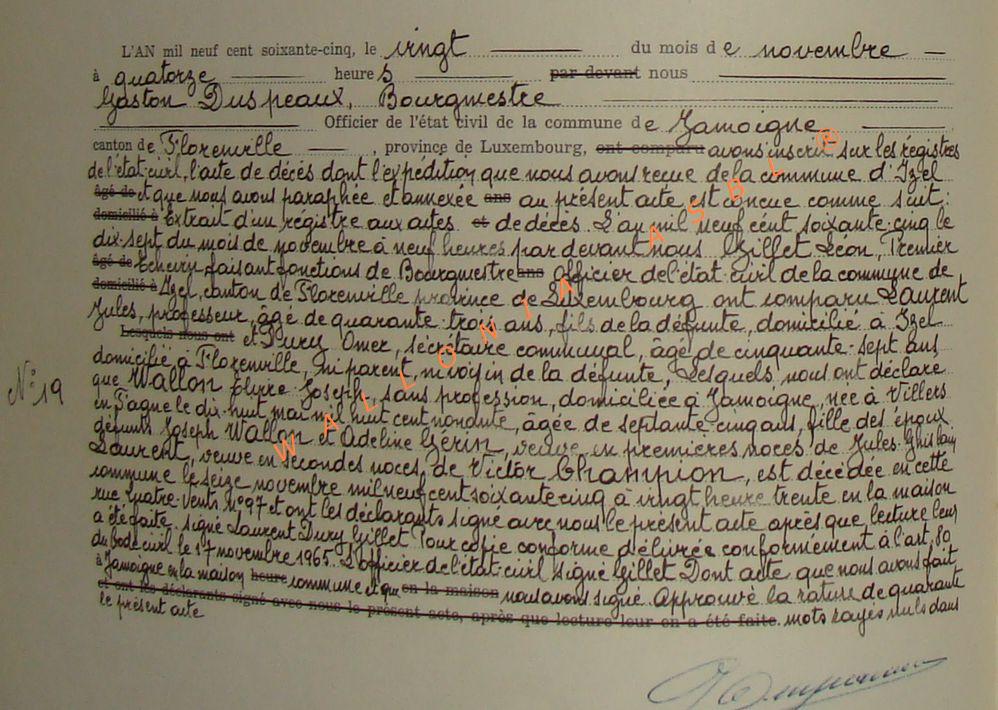 L'AN mil neuf cent soixante-cinq, le vingt du mois de novembre
à quatorze heures par devant nous
Gaston Duspeaux, Bourgmestre
Officier de l'état civil de la commune de Jamoigne
canton de Florenville, province de Luxembourg, ont comparu avons inscrit sur les registres
de l'état-civil, l'acte de décès dont l'expédition que nous avons reçue de la commune d'Izel
âgé de et que nous avons paraphée et annexée ans au présent acte est conçue comme suit:
domicilié à Extrait d'un régistre aux actes et de décès. L'an mil neuf cent soixante-cinq le
dix-sept du mois de novembre à neuf heures par devant nous Gillet Léon, Premier
âgé de Echevin faisant fonctions de Bourgmestre ans Officier de l'état-civil de la commune de
domicilié à Izel, canton de Florenville province de Luxembourg ont comparu Laurent
Jules, professeur, âgé de quarante-trois ans, fils de la défunte, domicilié à Izel
Lesquels nous ont et Dury Omer, sécrétaire communal, âgé de cinquante-sept ans
domicilié à Florenville, ni parent, ni voisin de la défunte, Lesquels nous ont déclaré
N° 19
que Wallon Joseph, sans profession, domiciliée à Jamoigne, née à Villers
en Fagne le dix-huit mai mil huit cent nonante, âgée de septante cinq ans, fille des époux
défunts Joseph Wallon et Adeline Gérin, veuve en premières noces de Jules Ghislain
Laurent, veuve en secondes noces, de Victor Champion, est décédée en cette
commune le seize novembre mil neuf cent soixante cinq à vingt heure trente en la maison
rue Quatre-Vents N° 97 et ont les déclarants signé avec nous le présent acte après que lecture leur
a été faite. signé Laurent Dury Gillet Pour copie conforme délivrée conformément à l'art. 80
du Code civil le 17 novembre 1965. L'officier de l'état-civil signé Gillet Dont acte que nous avons fait
à Jamoigne en la maison heure commune et que en la maison nous avons signé. Approuvé la rature de quarante
et ont les déclarants signé avec nous le présent acte, après que lecture leur en a été faite. mots rayés nuls dans
le présent acte
WALLONIA ASBL ®